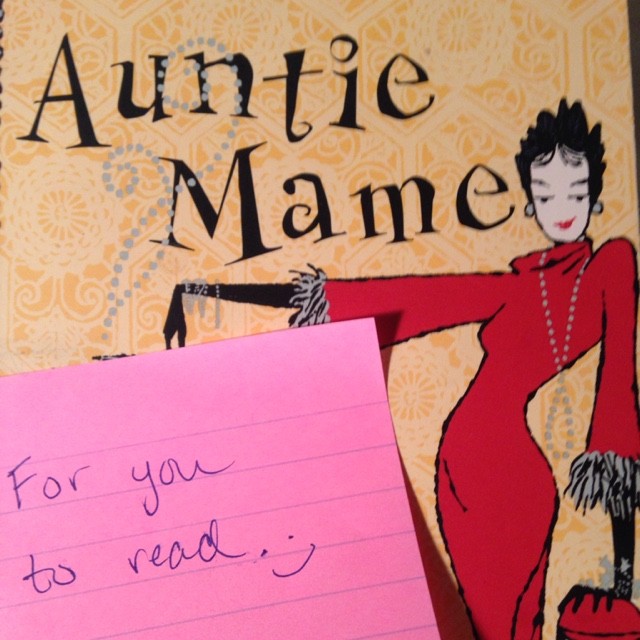 Auntie
Mame
For you
to read. :)